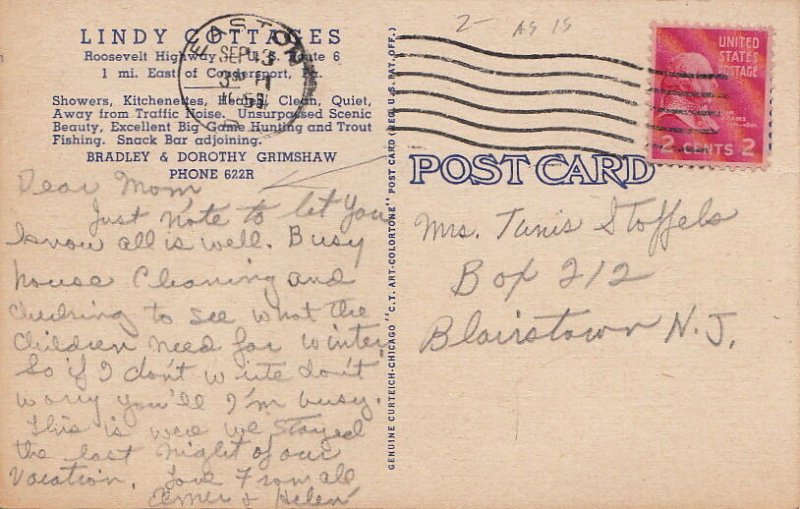 LINDY COTTAGES
Roosevelt Highway U. S. Route 6
1 mi. East of Coudersport, Pa.
Showers, Kitchenettes, Heated, Clean, Quiet,
Away from Traffic Noise. Unsurpassed Scenic
Beauty, Excellent Big Game Hunting and Trout
Fishing. Snack Bar adjoining.
BRADLEY & DOROTHY GRIMSHAW
PHONE 622R
Dear Mom
Just Note to let You
know all is well. Busy
house Cleaning and
checking to see what the
children need for winter
So if I don't write don't
worry you'll I'm busy.
This is were we stayed
the last night of our
Vacation. Love From all
Elmer & Helen
GENUINE CURTEICH-CHICAGO "C.T. ART-COLORTONE" POST CARD (REG. U.S. PAT. OFF.)
EASTON
SEP 13
2- AS IS
UNITED
STATES
POSTAGE
2 CENTS 2
POST CARD
Mrs. Tunis Stoffels
Box 212
Blairstown N.J.